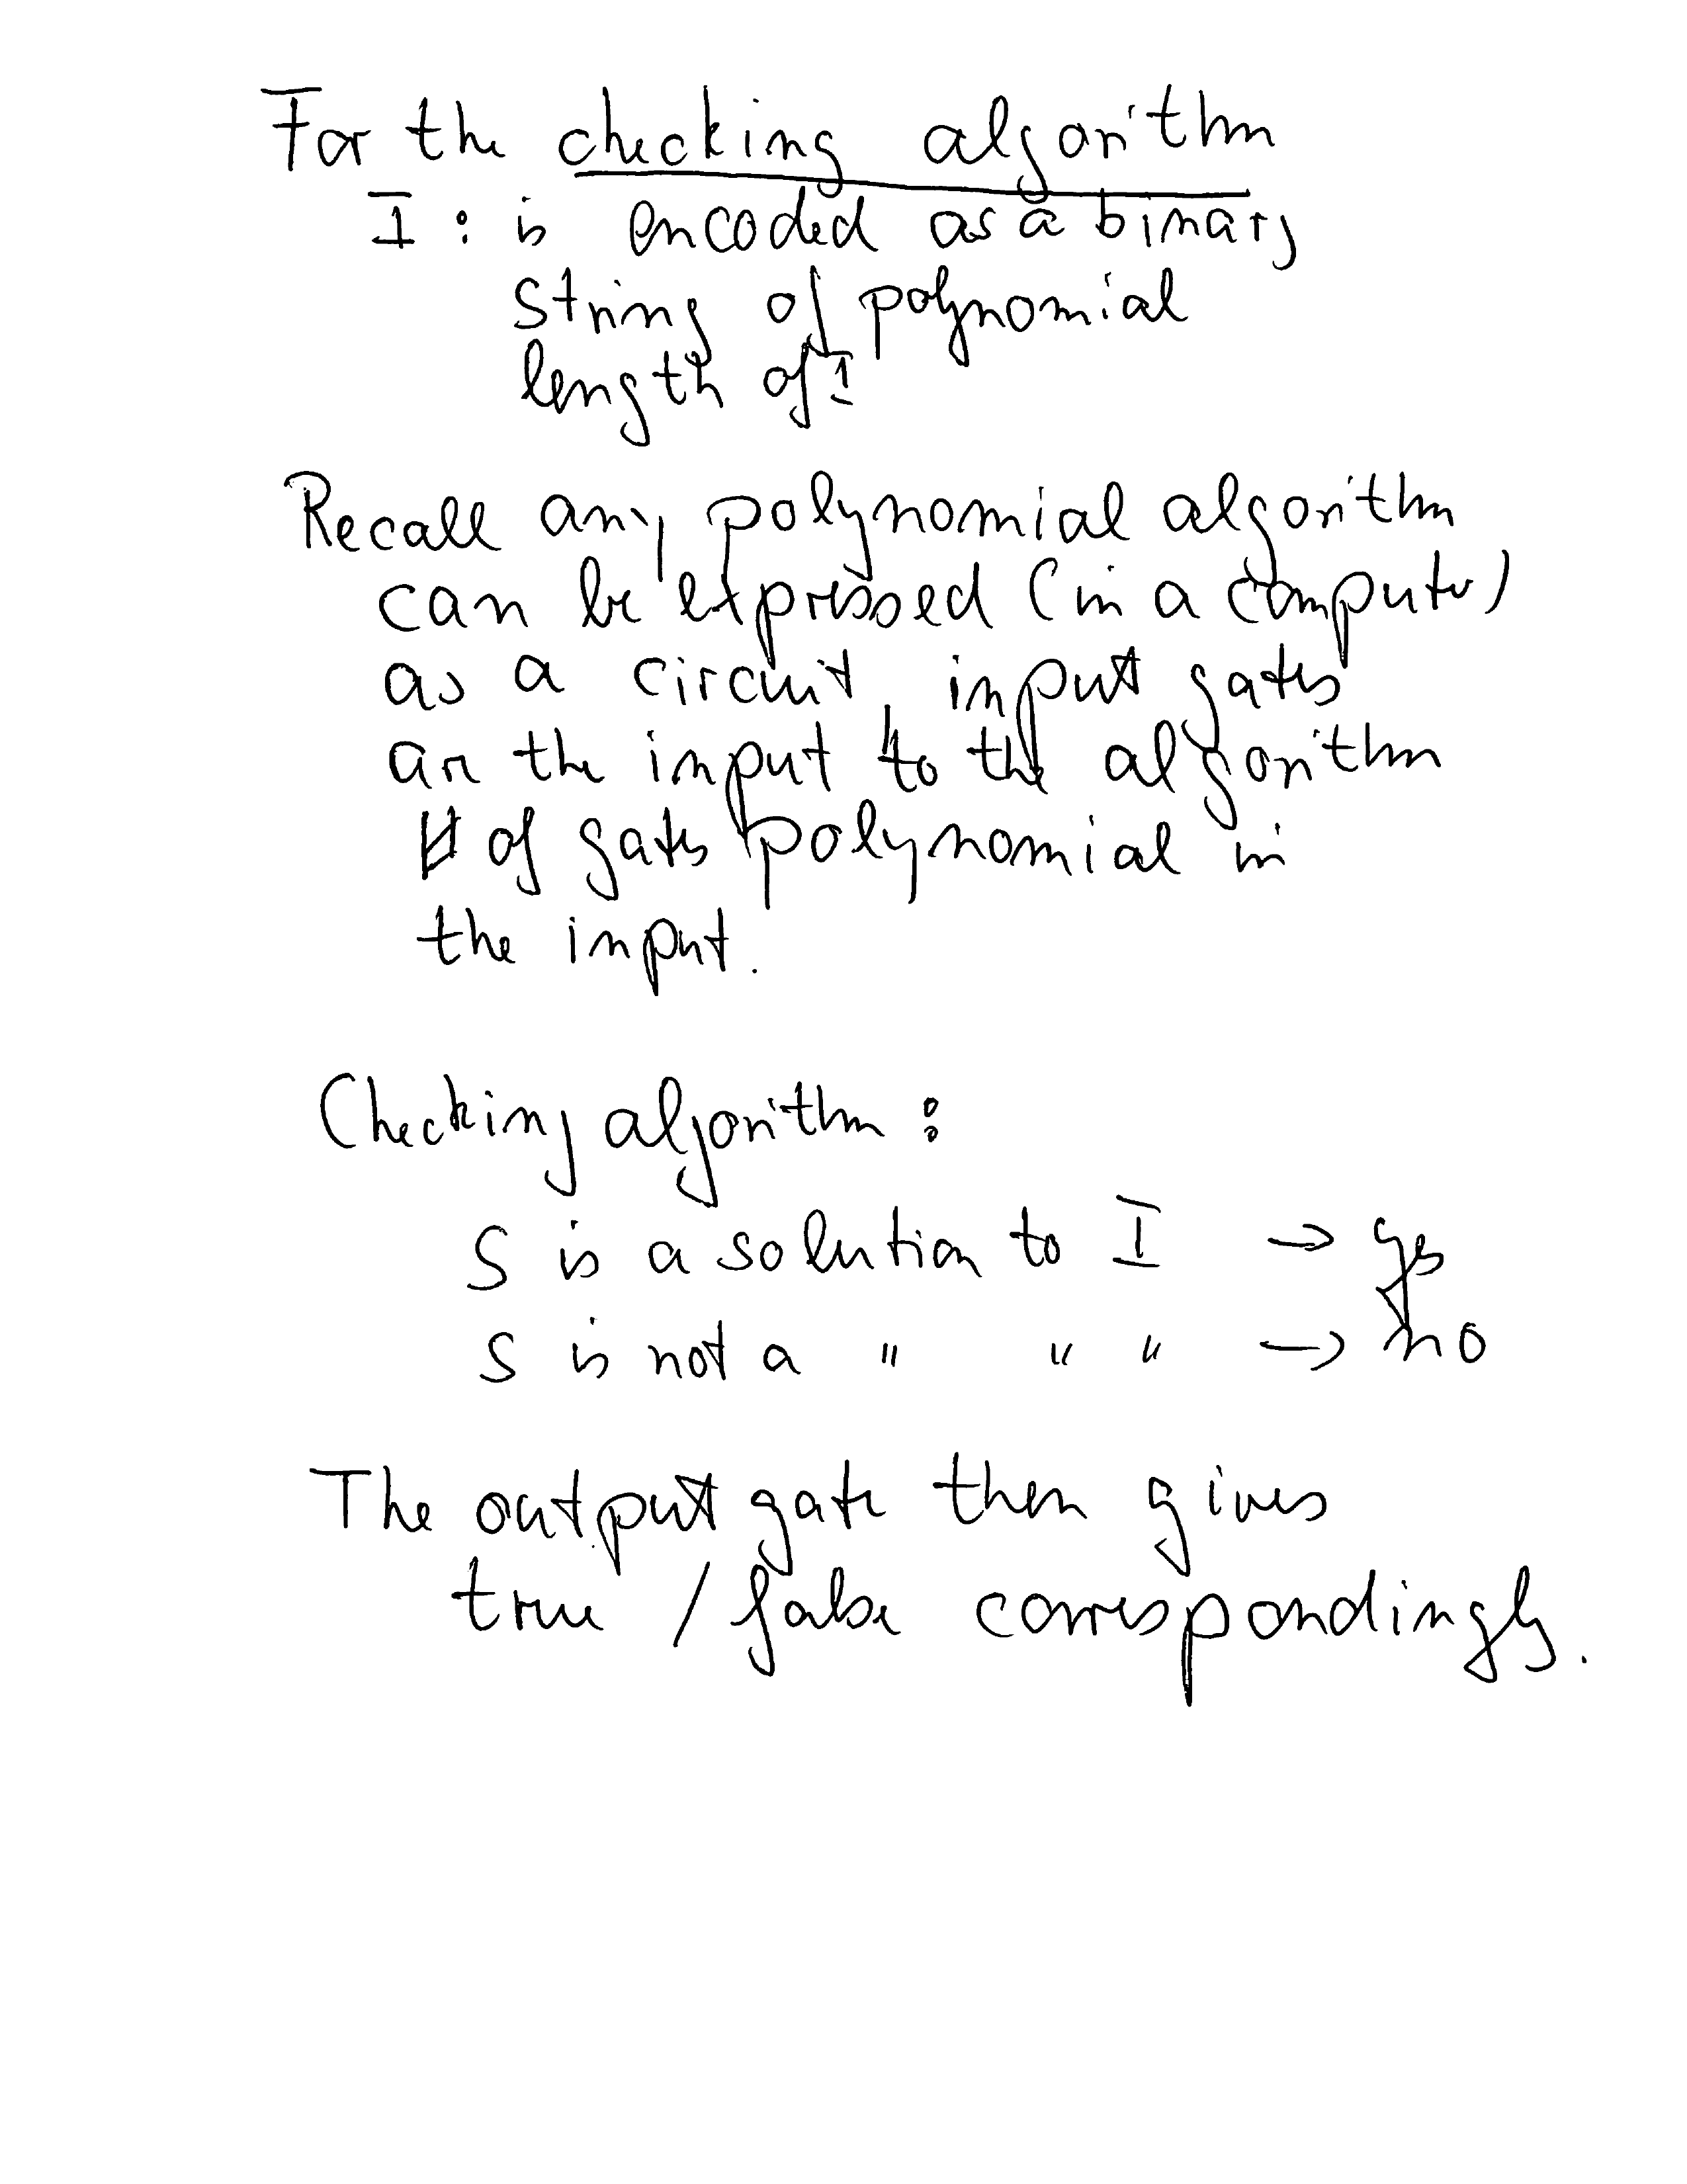 For the checking algorithm
I : is encoded as a binary
string of polynomial
length of I
Recall any polynomial algorithm
can be expressed (in a computer)
as a circuit, input gates
are the input to the algorithm
# of gates polynomial in
the input.
Checking algorithm :
S is a solution to I → yes
S is not a " " " → no
The output gate then gives
true / false correspondingly.